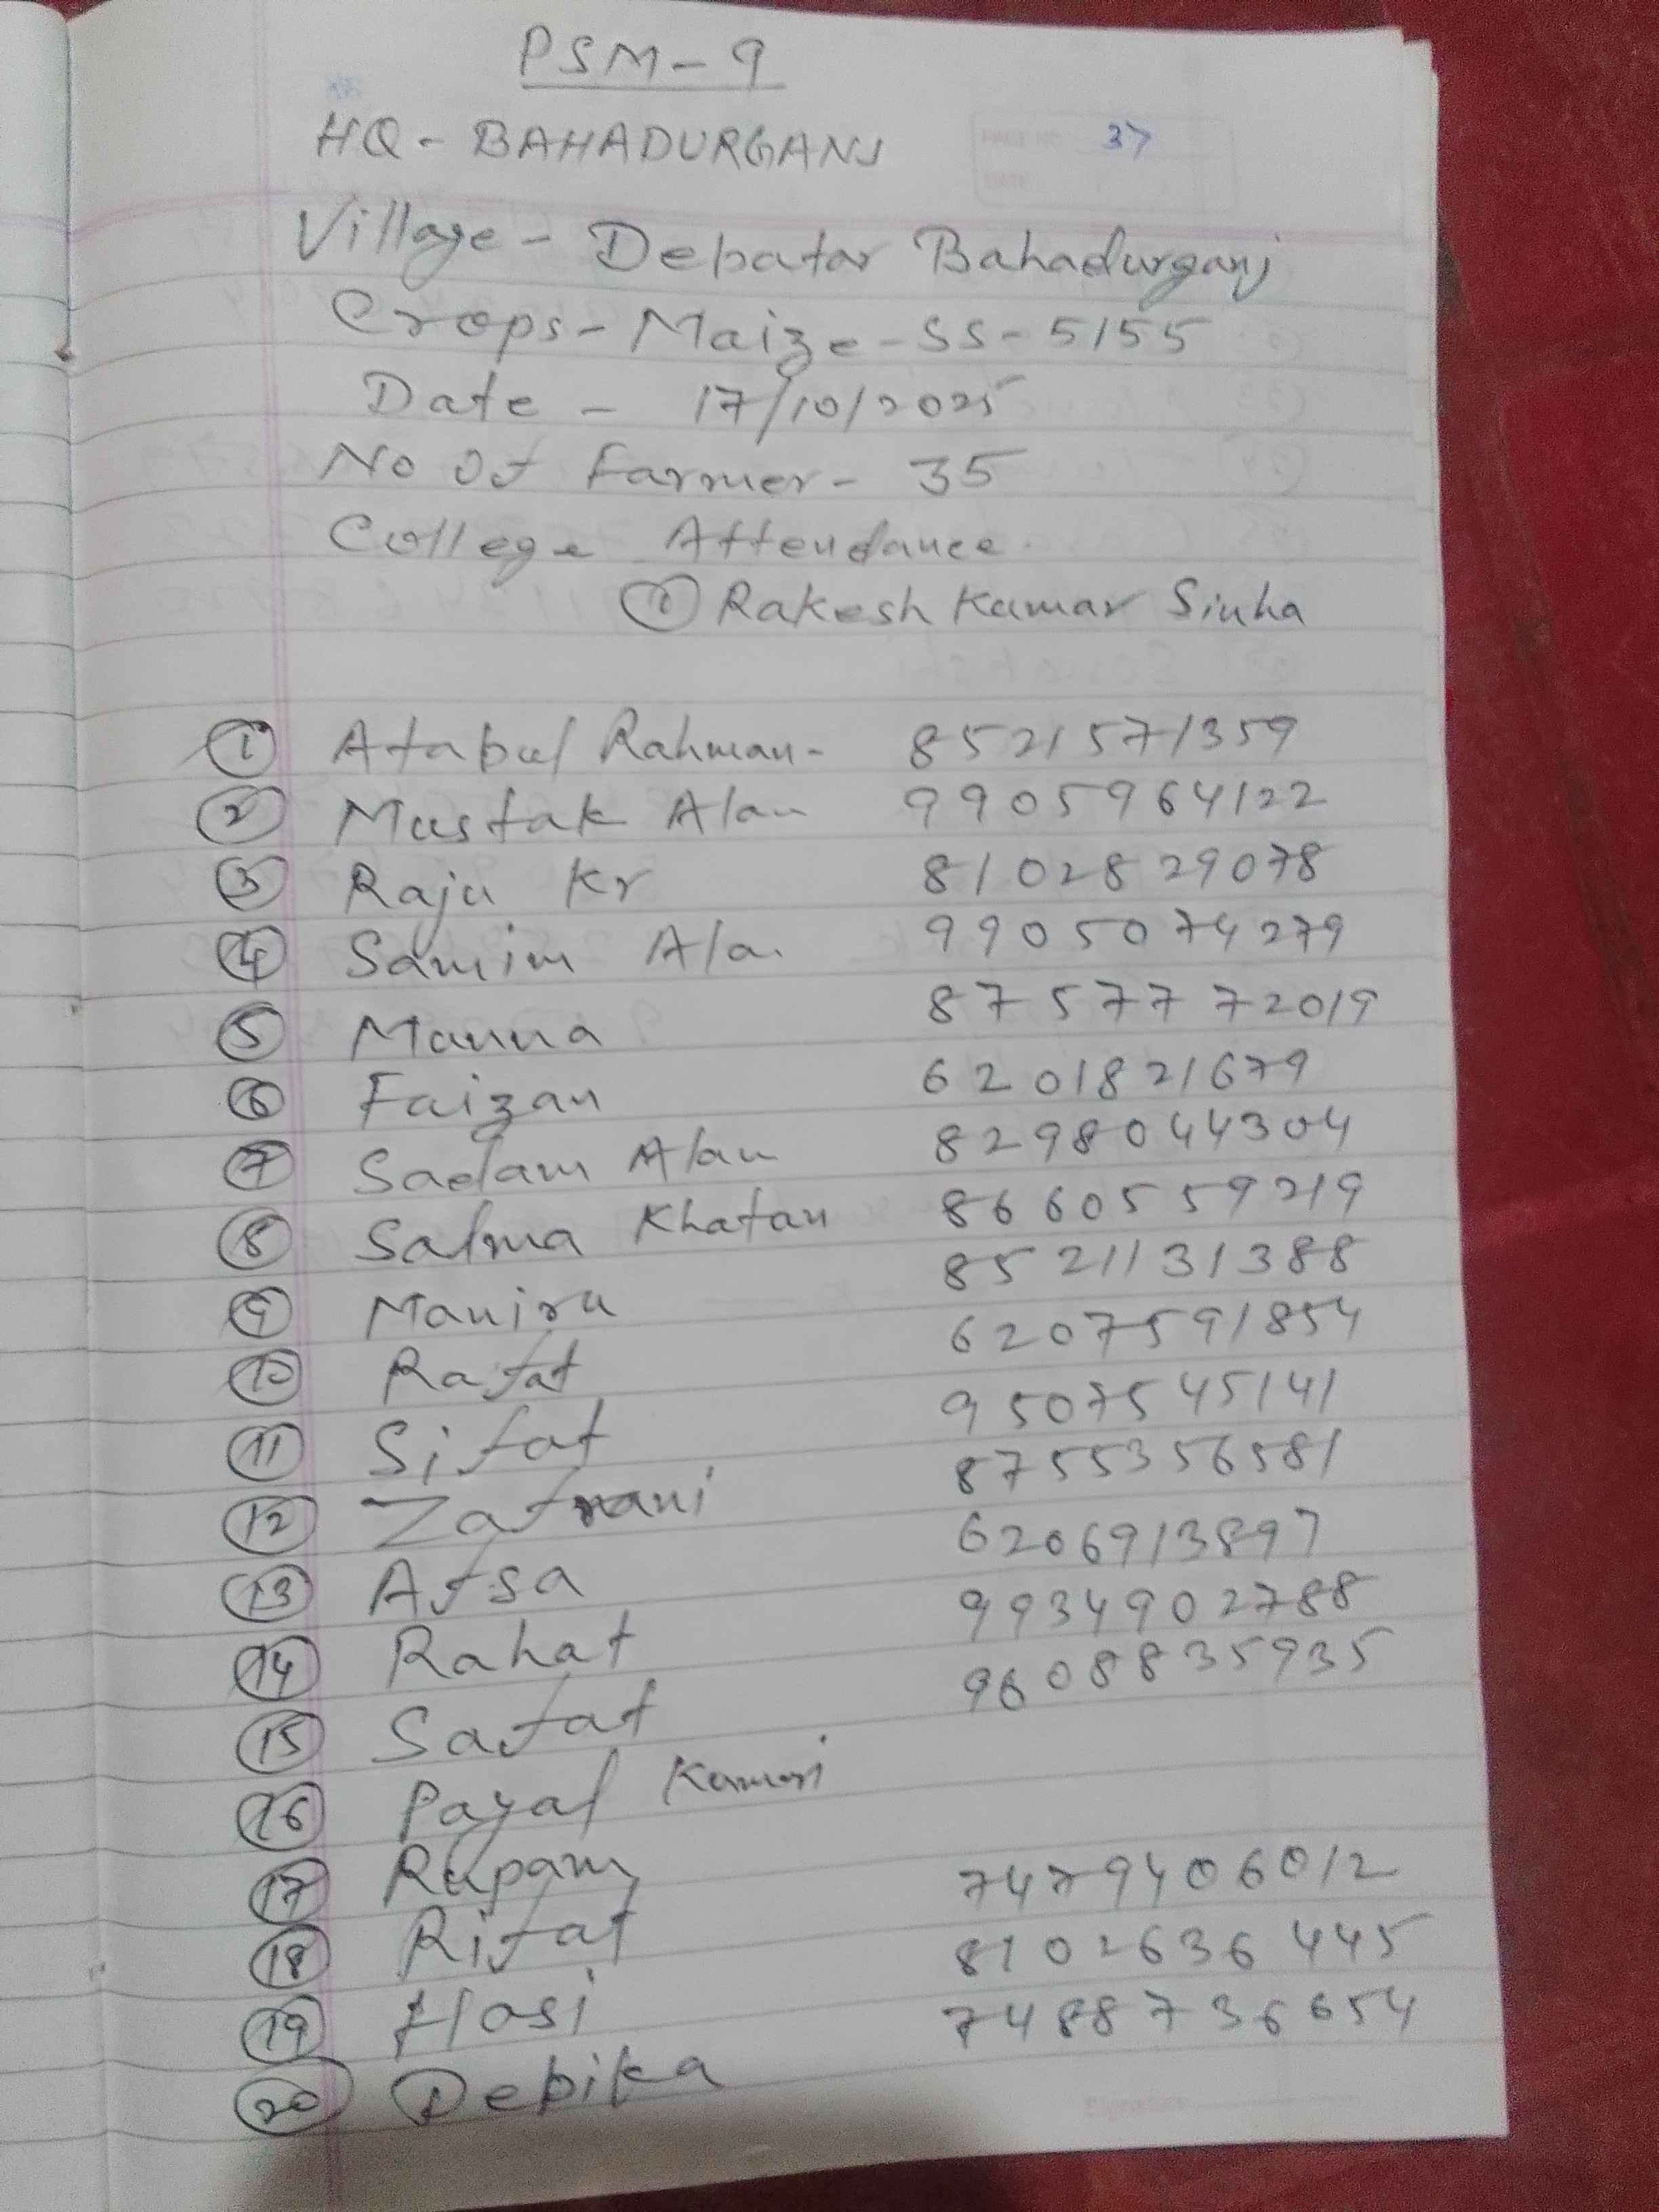 PSM-9
HQ - BAHADURGANJ
37
Village - Debatar Bahadurganj
Crops - Maize - SS - 5155
Date - 17/10/2025
No Of Farmer - 35
College Attendance
① Rakesh Kumar Sinha
① Atabul Rahman - 8521571359
② Mustak Alam 9905964122
③ Raju Kr 8102829078
④ Samim Ala. 9905074279
⑤ Manna 8757772019
⑥ Faizan 6201821679
⑦ Sadam Alam 8298044304
⑧ Salma Khatan 8660559219
⑨ Maniru 8521131388
⑩ Rafat 6207591854
⑪ Sifat 9507545141
⑫ Zafrani 8755356581
⑬ Afsa 6206913897
⑭ Rahat 9934902788
⑮ Safat 9608835935
⑯ Payal Kumari
⑰ Rupam 7479406012
⑱ Rifat 8102636445
⑲ Hasi 7488736654
⑳ Debika